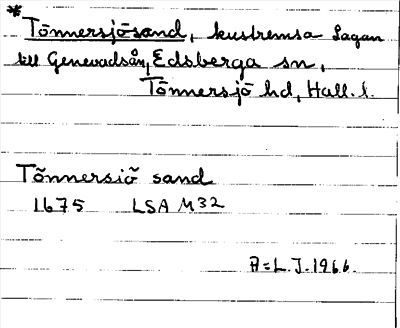 * Tönnersjösand, kustremsa Lagan
till Genevadsån, Edsberga sn,
Tönnersjö hd, Hall. l.
Tõnnersiõ sand
1675 LSA M32
A=L.J.1966.